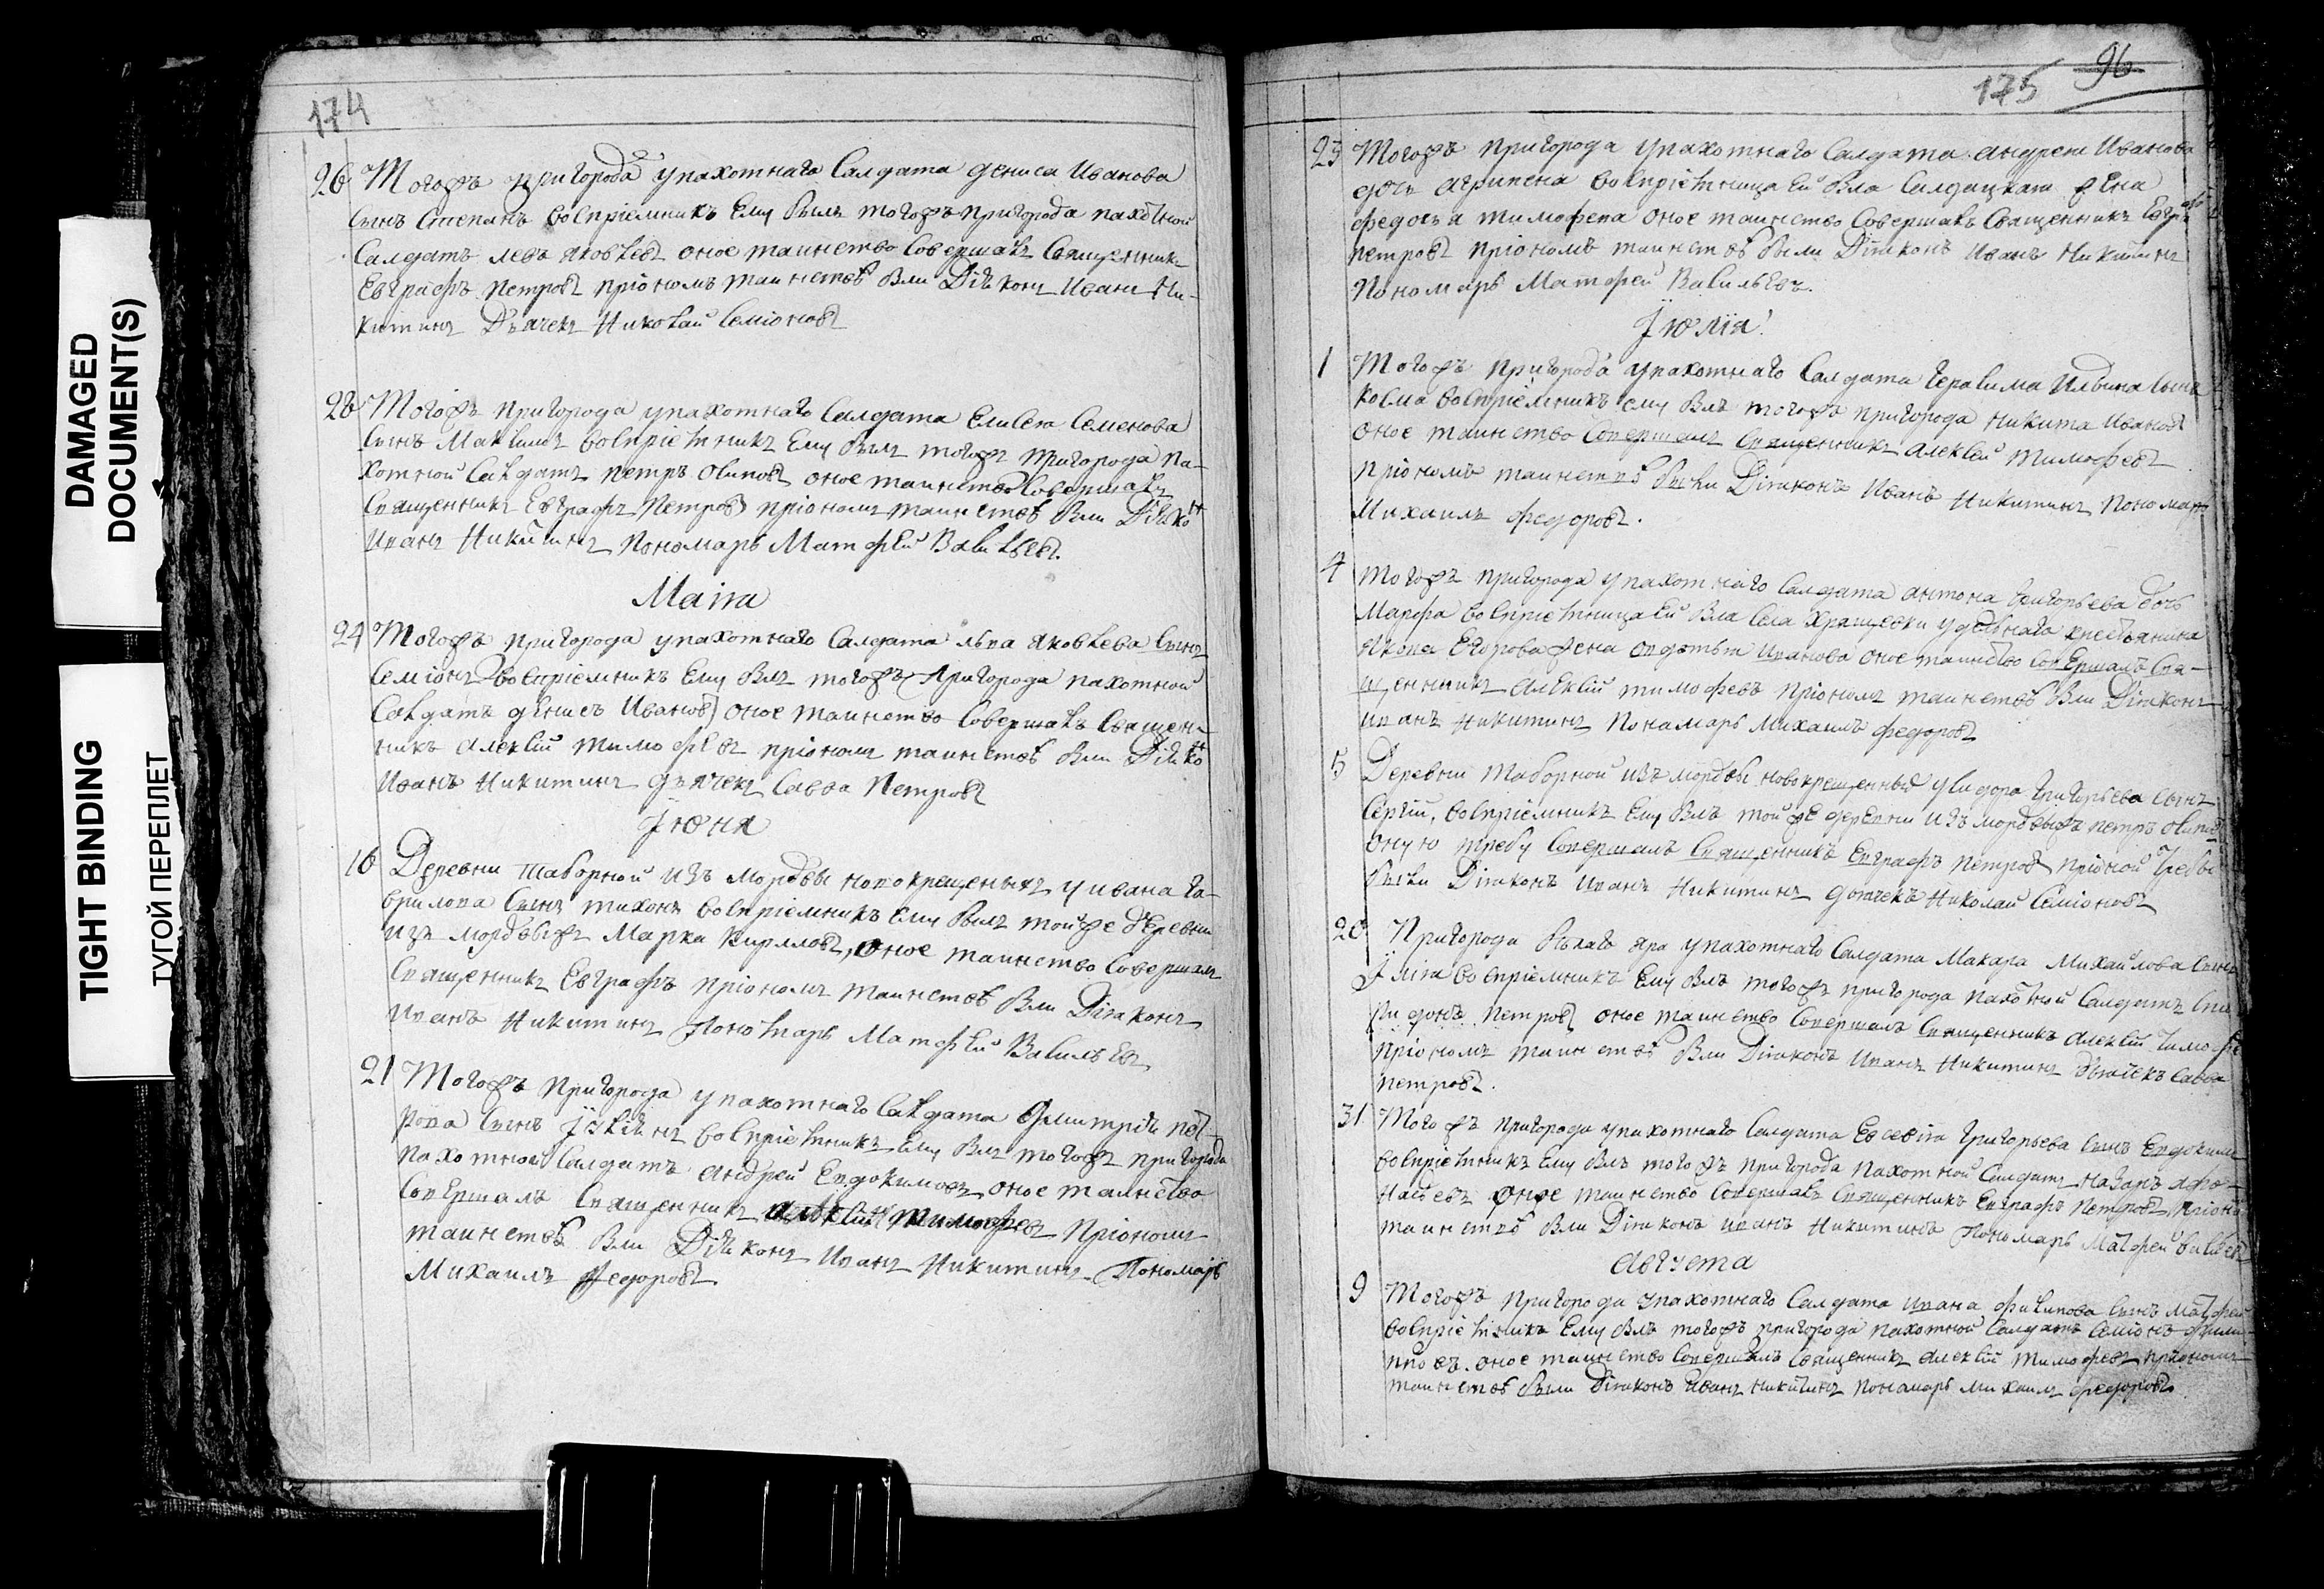 DAMAGED
DOCUMENT(S)
TIGHT BINDING
ТУГОЙ ПЕРЕПЛЕТ
174
26 Тогожъ пригорода упахотнаго Салдата дениса Иванова
сынъ Степанъ воспріемникъ ему былъ тогожъ пригорода пахотной
Салдатъ левъ яковлевъ оное таинство совершалъ священникъ
Евграфъ петровъ пріономъ таинствѣ были Діяконъ Иванъ Ни-
китинъ Дьячекъ Николай Семіоновъ
28 Тогожъ пригорода упахотнаго Салдата Елисея Семенова
сынъ Максимъ воспріемникъ Ему былъ тогожъ пригорода па-
хотной Салдатъ петръ осиповъ оное таинство совершалъ
священникъ Евграфъ Петровъ пріономъ таинствѣ были Діяконъ
иванъ Никитинъ пономарь Матфей Васильевъ.
Маія
24 Тогожъ пригорода упахотнаго Салдата льва яковлева сынъ
Семіонъ воспріемникъ Ему былъ тогожъ пригорода пахотной
Салдатъ денисъ Ивановъ оное таинство совершалъ священ-
никъ алексій тимофѣевъ пріономъ таинствѣ были Діяконъ
Иванъ Никитинъ дьячекъ Савва Петровъ
Іюня
16 Деревни таборной изъ мордвы новокрещеныхъ у ивана га-
врилова сынъ тихонъ воспріемникъ ему былъ тойже деревни
изъ мордвыжъ Марка Кирилловъ, оное таинство совершалъ
священникъ Евграфъ пріономъ таинствѣ были Діяконъ
иванъ Никитинъ Пономарь Матфей Васильевъ
21 Тогожъ пригорода упахотнаго Салдата Дмитрія пет-
рова сынъ Іуліянъ воспріемникъ Ему былъ тогожъ пригорода
пахотной Салдатъ андрей Евдокимовъ оное таинство
совершалъ священникъ алексій тимофѣевъ пріономъ
таинствѣ были Діяконъ Иванъ Никитинъ Пономарь
Михаилъ Федоровъ
175 96
23 Тогожъ пригорода упахотнаго Салдата андрея Иванова
дочь агрипена воспріемница Ей была Салдацкая жена
федосья тимофеева оное таинство совершалъ священникъ Евграфъ
петровъ пріономъ таинствѣ были Діяконъ Иванъ Никитинъ
Пономарь Матфей Васильевъ.
Іюлія
1 Тогожъ пригорода упахотнаго Салдата герасима Ильина сынъ
косма воспріемникъ ему былъ тогожъ пригорода никита Ивановъ
оное таинство совершалъ священникъ алексей тимофеевъ
пріономъ таинствѣ были Діяконъ Иванъ Никитинъ Пономарь
Михаилъ федоровъ.
4 тогожъ пригорода упахотнаго Салдата антона григорьева дочь
Марфа воспріемницай Ей была села Хрящевки удельнаго крестьянина
якова Егорова жена иванова оное таинство совершалъ свя-
щенникъ алексій тимофеевъ пріономъ таинствѣ были Діяконъ
иванъ Никитинъ Понамарь Михаилъ федоровъ
5 Деревни таборной изъ мордвы новокрещенный у сидора григорьева сынъ
Сергій, воспріемникъ Ему былъ тойже деревни изъ мордвыжъ петръ осиповъ
оную требу совершалъ священникъ Евграфъ петровъ пріоной требы
были Діяконъ иванъ Никитинъ дьячекъ Николай Семіоновъ
20 Пригорода Белаго яра упахотнаго Салдата Макара Михайлова сынъ
Їлія воспріемникъ Ему былъ тогожъ пригорода пахотной Салдатъ Спи-
ридонъ петровъ оное таинство совершалъ священникъ алексій Тимофѣе
пріономъ таинствѣ были Діяконъ иванъ Никитинъ дьячекъ Савва
петровъ.
31 Тогожъ пригорода упахотнаго Салдата Евсевія григорьева сынъ Евдокимъ
воспріемникъ Ему былъ тогожъ пригорода пахотной Салдатъ назаръ афо-
насьевъ оное таинство совершалъ священникъ Евграфъ Петровъ, пріономъ
таинствѣ были Діяконъ иванъ Никитинъ Пономарь Матфей васильевъ
августа
9 Тогожъ пригорода упахотнаго Салдата ивана филипова сынъ Матфей
воспріемникъ Ему былъ тогожъ пригорода пахотной Салдатъ Семіонъ фили-
повъ. оное таинство совершалъ священникъ алексій тимофеевъ, пріономъ
таинствѣ были Діяконъ иванъ никитинъ пономарь михаилъ федоровъ